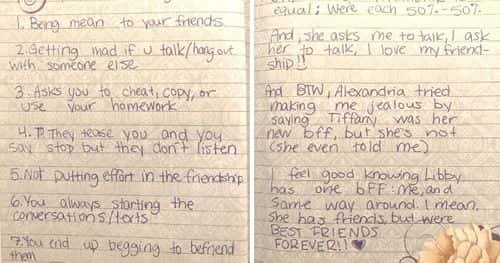 1. Being mean to your friends
2. Getting mad if u talk/hang out
with someone else
3. Asks you to cheat, copy, or
use your homework
4. They tease you and you
say stop but they don't listen
5. Not putting effort in the friendship
6. You always starting the
conversations/texts
7. You end up begging to befriend
them
equal; Were each 50%-50%.
And, she asks me to talk, I ask
her to talk, I love my friend-
ship!!
And BTW, Alexandria tried
making me jealous by
saying Tiffany was her
new bff, but she's not
(she even told me)
I feel good knowing Libby
has one bff: me, and
same way around. I mean,
she has friends, but were
BEST FRIENDS
FOREVER!!